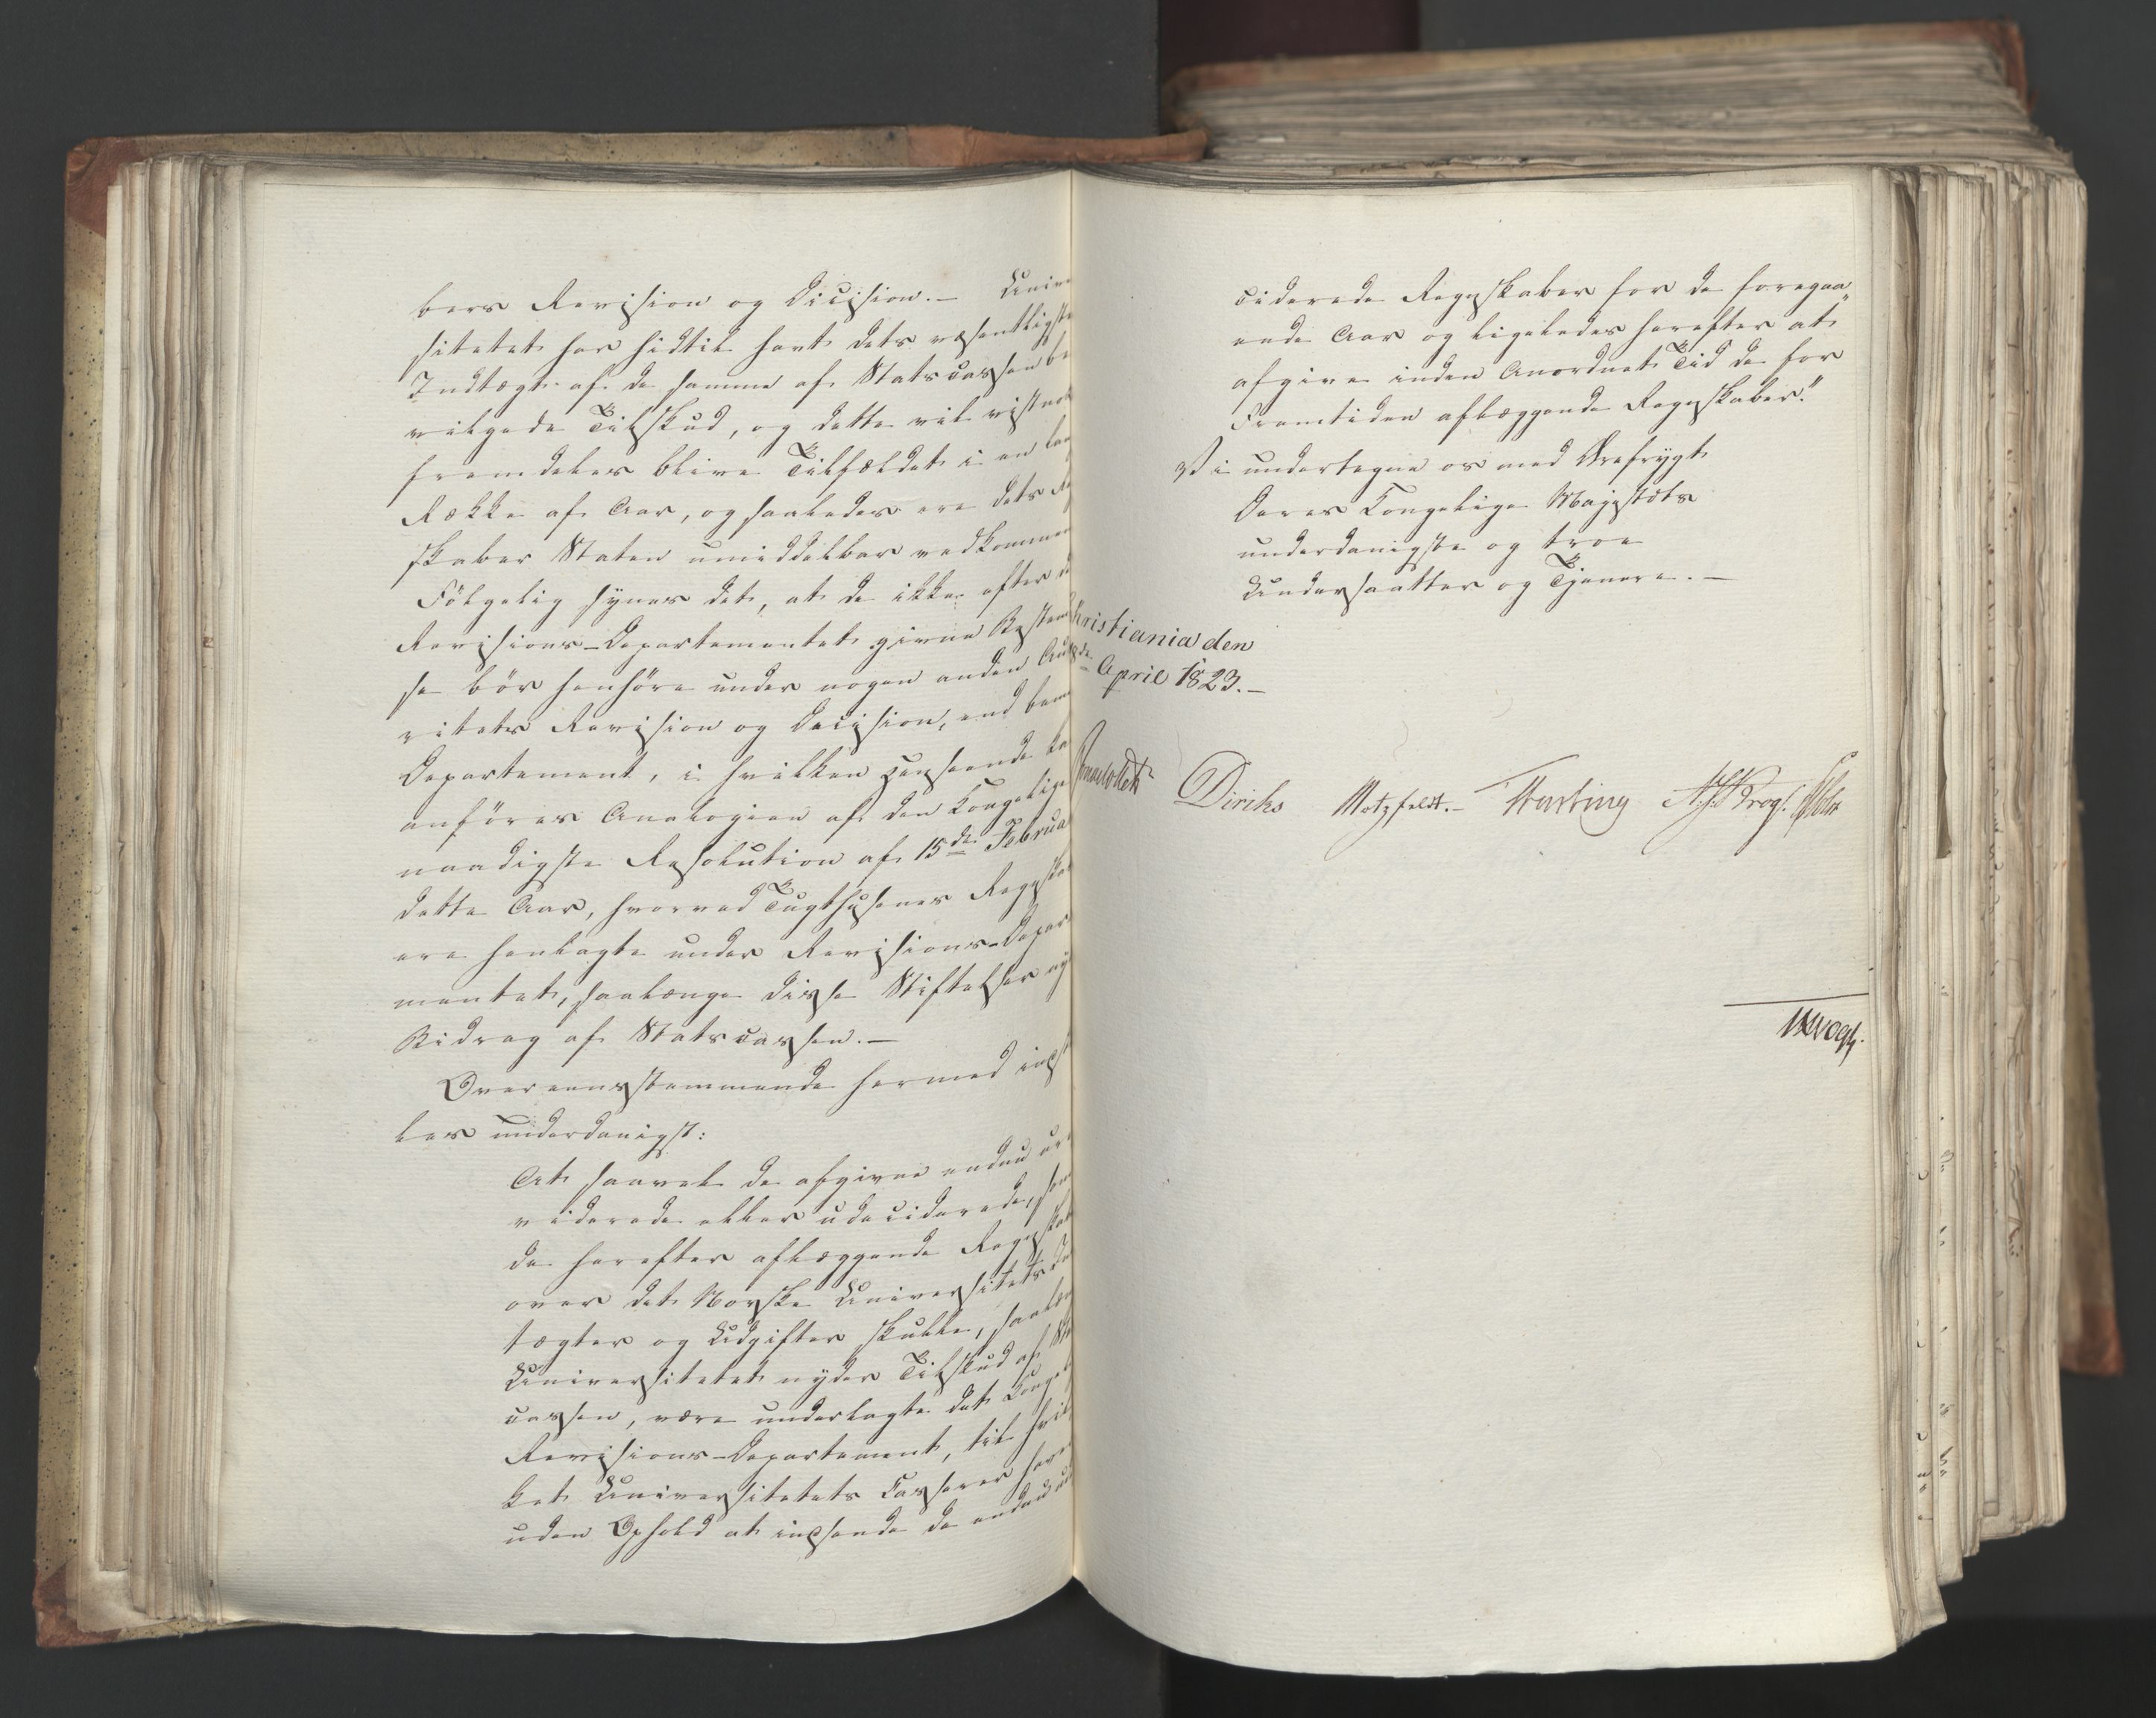 bers Revision og Dicision. — Unive
sitetet har hidtil havt dets væsentligste
Indtægt af de samme af Statscassen be
vilgede Tilskud, og dette vil vistnok
fremdeles blive Tilfældet i en lan
Række af Aar, og saaledes ere dets Re
skaber Staten umiddelbar vedkommen
Følgelig synes det, at de ikke efter de
Revisions-Departementet givne Bestem
se bør henhøre under nogen anden Au
ritets Revision og Decision, end bem
Departement, i hvilken Henseende ka
anføres Analogien af den Kongelige
naadigste Resolution af 15de Februa
dette Aar, hvorved Tugthusenes Regnska
ere henlagte under Revisions-Depar
mentet, saalænge disse Stiftelser ny
Bidrag af Statscassen. —
Overeensstemmende hermed inst
les underdanigst:
At saavel de afgivne endnu ure
viderede eller udeciderede, som
de herefter aflæggende Regnskab
over det Norske Universitets Ind
tægter og Udgifter skulle, saalæn
Universitetet nyder Tilskud af Sta
cassen, være underlagte det Konge
Revisions-Departement, til hvil
ket Universitetets Casserer har
uden Ophold at indsende de endnu ud
ciderede Regnskaber for de foregaa„
ende Aar og ligeledes herefter at
afgive inden Anordnet Tid de for
Fremtiden aflæggende Regnskaber."
Vi undertegne os med Ærefrygt
Deres Kongelige Majestæts
underdanigste og troe
Undersaatter og Tjenere. —
hristiania den
de April 1823. —
Diriks Motzfeldt. — Krogh.